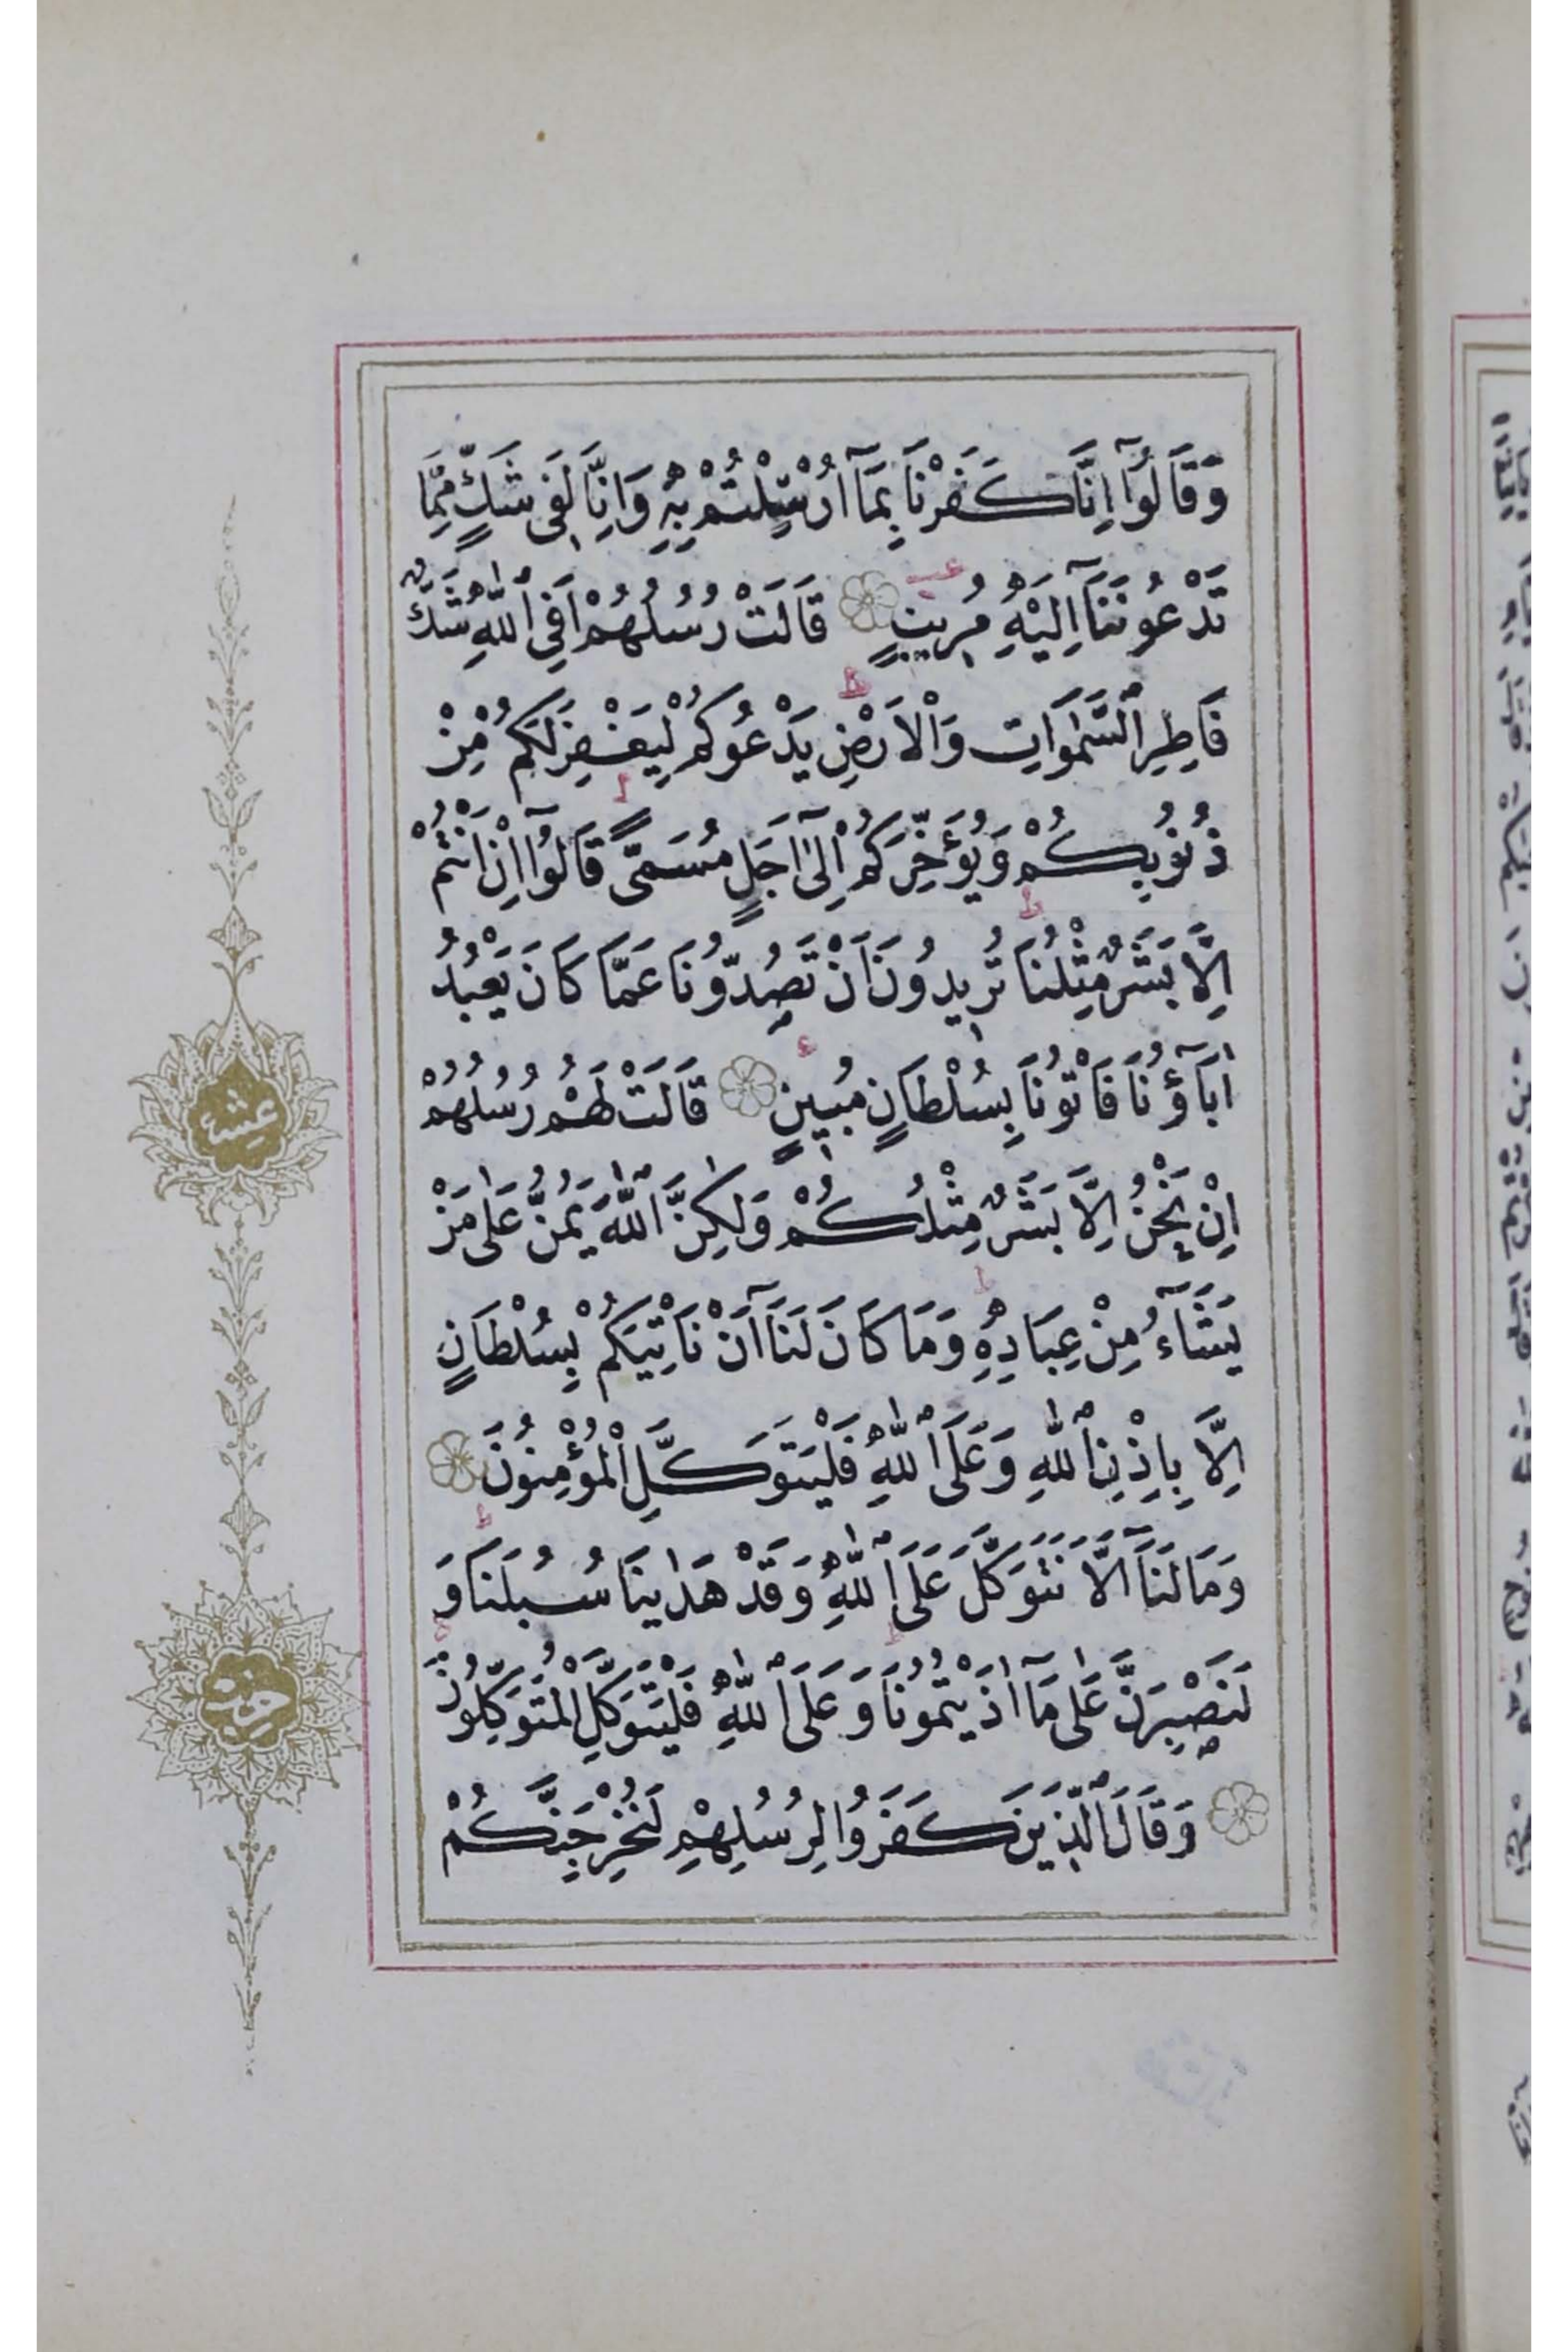 وَقَالُوٓا اِنَّا كَفَرْنَا بِمَٓا اُرْسِلْتُمْ بِهٖ وَاِنَّا لَفٖي شَكٍّ مِمَّا
تَدْعُونَنَٓا اِلَيْهِ مُرٖيبٍ قَالَتْ رُسُلُهُمْ اَفِي اللّٰهِ شَكٌّ
فَاطِرِ السَّمٰوَاتِ وَالْاَرْضِ يَدْعُوكُمْ لِيَغْفِرَ لَكُمْ مِنْ
ذُنُوبِكُمْ وَيُؤَخِّرَكُمْ اِلٰٓى اَجَلٍ مُسَمًّى قَالُوٓا اِنْ اَنْتُمْ
اِلَّا بَشَرٌ مِثْلُنَا تُرٖيدُونَ اَنْ تَصُدُّونَا عَمَّا كَانَ يَعْبُدُ
اٰبَٓاؤُنَا فَاْتُونَا بِسُلْطَانٍ مُبٖينٍ قَالَتْ لَهُمْ رُسُلُهُمْ
اِنْ نَحْنُ اِلَّا بَشَرٌ مِثْلُكُمْ وَلٰكِنَّ اللّٰهَ يَمُنُّ عَلٰى مَنْ
يَشَٓاءُ مِنْ عِبَادِهٖ وَمَا كَانَ لَنَٓا اَنْ نَاْتِيَكُمْ بِسُلْطَانٍ
اِلَّا بِاِذْنِ اللّٰهِ وَعَلَى اللّٰهِ فَلْيَتَوَكَّلِ الْمُؤْمِنُونَ
وَمَا لَنَٓا اَلَّا نَتَوَكَّلَ عَلَى اللّٰهِ وَقَدْ هَدٰينَا سُبُلَنَا وَ
لَنَصْبِرَنَّ عَلٰى مَٓا اٰذَيْتُمُونَا وَعَلَى اللّٰهِ فَلْيَتَوَكَّلِ الْمُتَوَكِّلُونَ
وَقَالَ الَّذٖينَ كَفَرُوا لِرُسُلِهِمْ لَنُخْرِجَنَّكُمْ
عشر
حزب